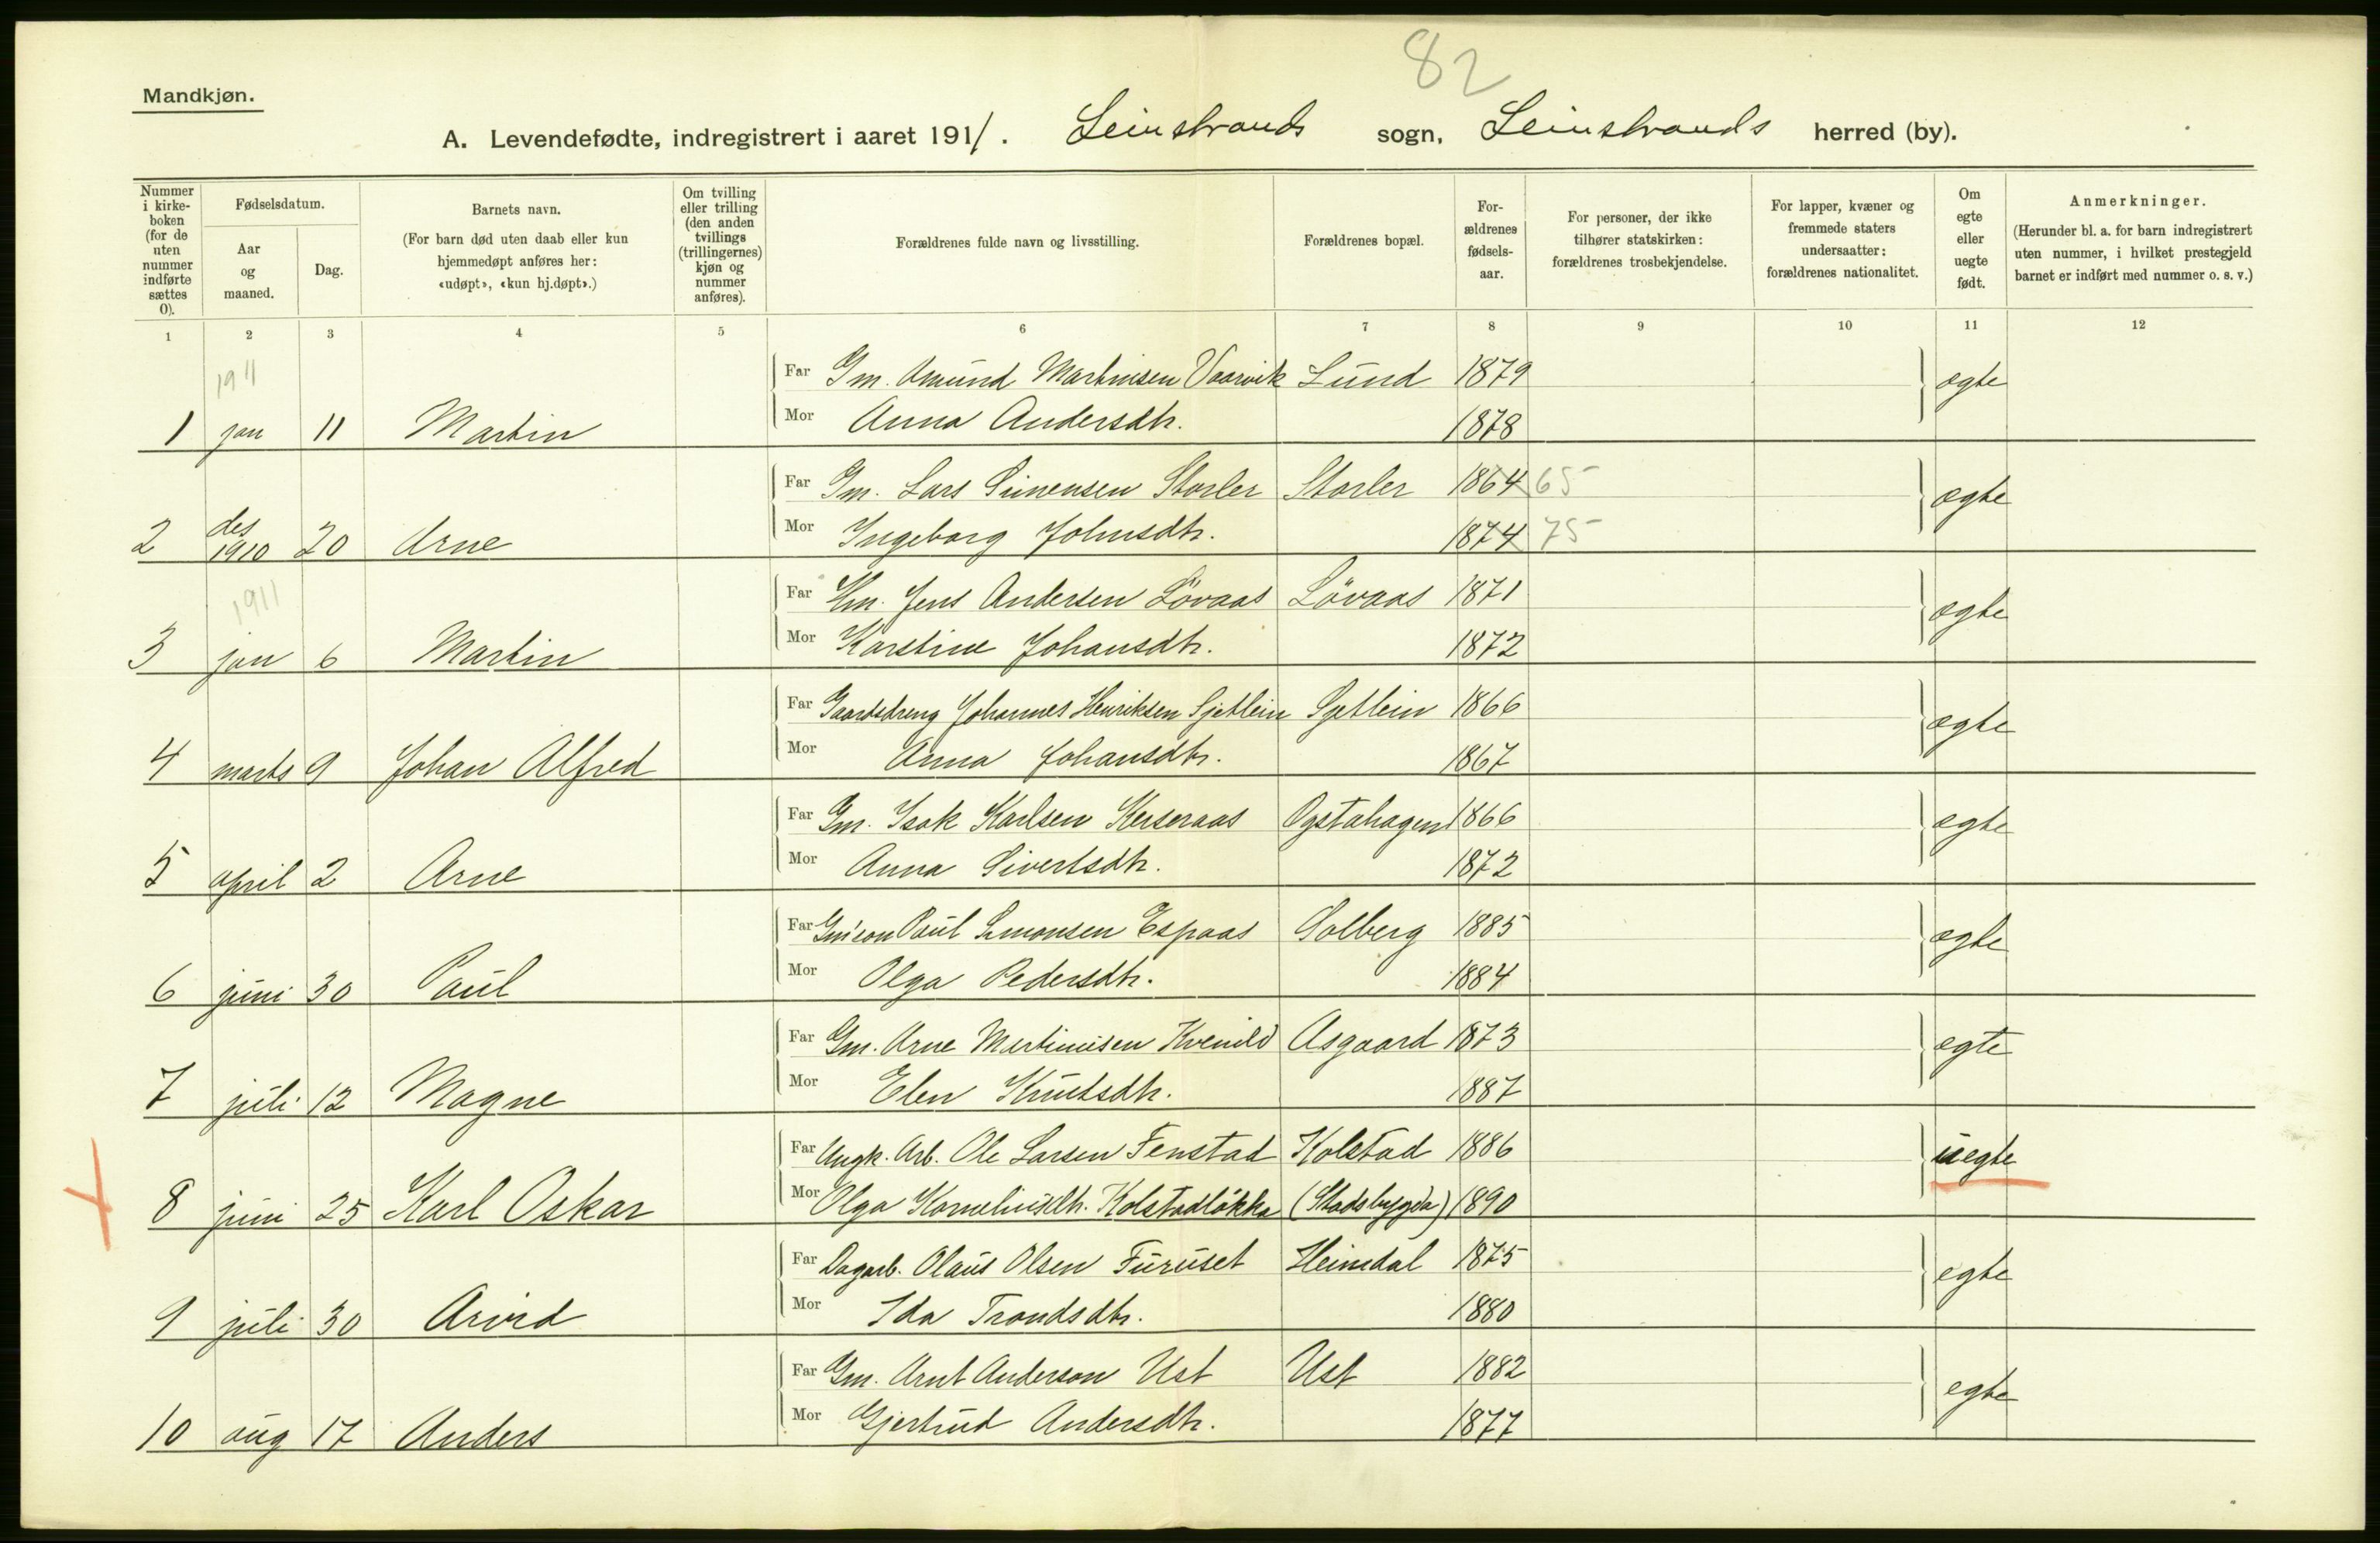 82
Mandkjøn.
A. Levendefødte, indregistrert i aaret 1911. Leinstrands sogn, Leinstrands herred (by).
Nummer i kirkeboken (for de uten nummer indførte sættes 0).
Fødselsdatum.
Aar og maaned.
Dag.
Barnets navn.
(For barn død uten daab eller kun hjemmedøpt anføres her: «udøpt», «kun hj.døpt».)
Om tvilling eller trilling (den anden tvillings (trillingernes) kjøn og nummer anføres).
Forældrenes fulde navn og livsstilling.
Forældrenes bopæl.
Forældrenes fødselsaar.
For personer, der ikke tilhører statskirken: forældrenes trosbekjendelse.
For lapper, kvæner og fremmede staters undersaatter: forældrenes nationalitet.
Om egte eller uegte født.
Anmerkninger.
(Herunder bl. a. for barn indregistrert uten nummer, i hvilket prestegjeld barnet er indført med nummer o. s. v.)
1 2 3 4 5 6 7 8 9 10 11 12
1911
Far Gm. Amund Martinsen Vaarvik Lund 1879 ægte
1 jan 11 Martin Mor Anna Andersdtr. 1878
Far Gm. Lars Simensen Storler Storler 1864 65 ægte
2 des 1910 20 Arne Mor Ingeborg Johnsdtr. 1874 75
1911
Far Hm. Jens Andersen Lövaas Lövaas 1871 ægte
3 jan 6 Martin Mor Karstine Johansdtr. 1872
Far Gaardsdreng Johannes Henriksen Sjetlein Sjetlein 1866 ægte
4 marts 9 Johan Alfred Mor Anna Johansdtr. 1867
Far Gm. Isak Karlsen Ystahagen 1866 ægte
5 april 2 Arne Mor Anna Sivertsdtr. 1872
Far Paul Simonsen Espaas Solberg 1885 ægte
6 juni 30 Paul Mor Olga Pedersdtr. 1884
Far Gm. Arne Martinusen Kvenild Asgaard 1873 egte
7 juli 12 Magne Mor Elen Knutsdtr. 1887
Far Ungk. Arb. Ole Larsen Fenstad Kolstad 1886 uegte
8 juni 25 Karl Oskar Mor Olga Korneliusdtr. Kolstadlökka (Stadsbygda) 1890
Far Dagarb. Olaus Olsen Furuset Heimdal 1875 egte
9 juli 30 Arvid Mor Ida Trondsdtr. 1880
Far Gm. Arnt Anderson Ust Ust 1882 egte
10 aug 17 Anders Mor Gjertrud Andersdtr. 1877